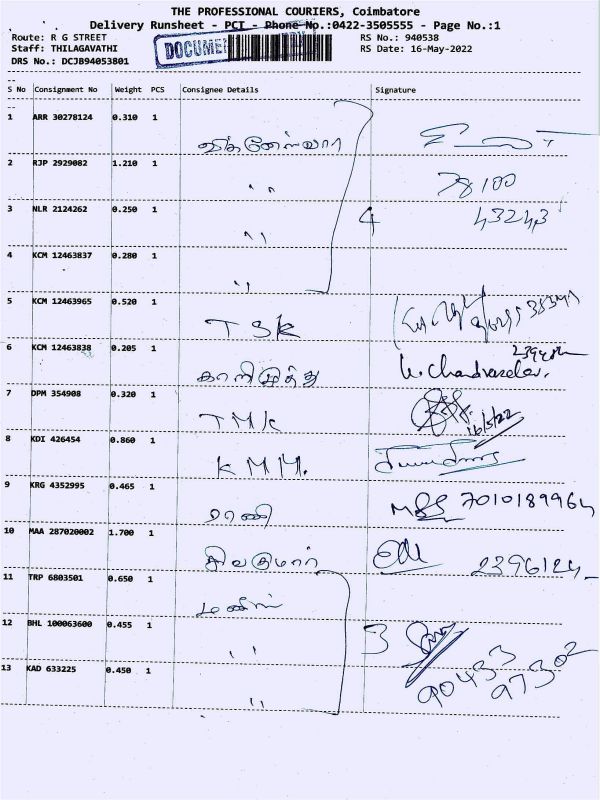 THE PROFESSIONAL COURIERS, Coimbatore
Delivery Runsheet - PCT - Phone No.:0422-3505555 - Page No.:1
Route: R G STREET RS No.: 940538
Staff: THILAGAVATHI DOCUMENT RS Date: 16-May-2022
DRS No.: DCJB94053801
S No Consignment No Weight PCS Consignee Details Signature
1 ARR 30278124 0.310 1
விக்னேஸ்வரா
2 RJP 2929082 1.210 1
" 78100
3 NLR 2124262 0.250 1 4 43243
"
4 KCM 12463837 0.280 1
"
5 KCM 12463965 0.520 1
TSK
6 KCM 12463838 0.205 1
காளிமுத்து
7 DPM 354908 0.320 1
TMK 16/5/22
8 KDI 426454 0.860 1
KMM.
9 KRG 4352995 0.465 1
ராணி 7010189964
10 MAA 287020002 1.700 1
சிவகுமார் 2396124
11 TRP 6803501 0.650 1
12 BHL 100063600 0.455 1 3
" 90433
13 KAD 633225 0.450 1 97302
"